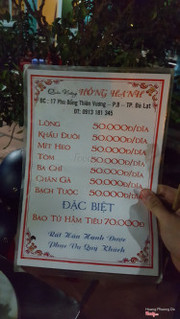 Quán Nướng HỒNG HẠNH
ĐC : 17 Phù Đổng Thiên Vương - P.8 - TP. Đà Lạt
DT: 0913 181 345
LÒNG 50.000Đ/DĨA
KHẤU ĐUÔI 50.000Đ/DĨA
MÉT HEO 50.000Đ/DĨA
TÔM 50.000Đ/DĨA
BA CHỈ 50.000Đ/DĨA
CHÂN GÀ 50.000Đ/DĨA
BẠCH TUỘC 50.000Đ/DĨA
ĐẶC BIỆT
BAO TỬ HẦM TIÊU 70.000Đ
Rất Hân Hạnh Được
Phục Vụ Quý Khách
Hoang Phuong Do